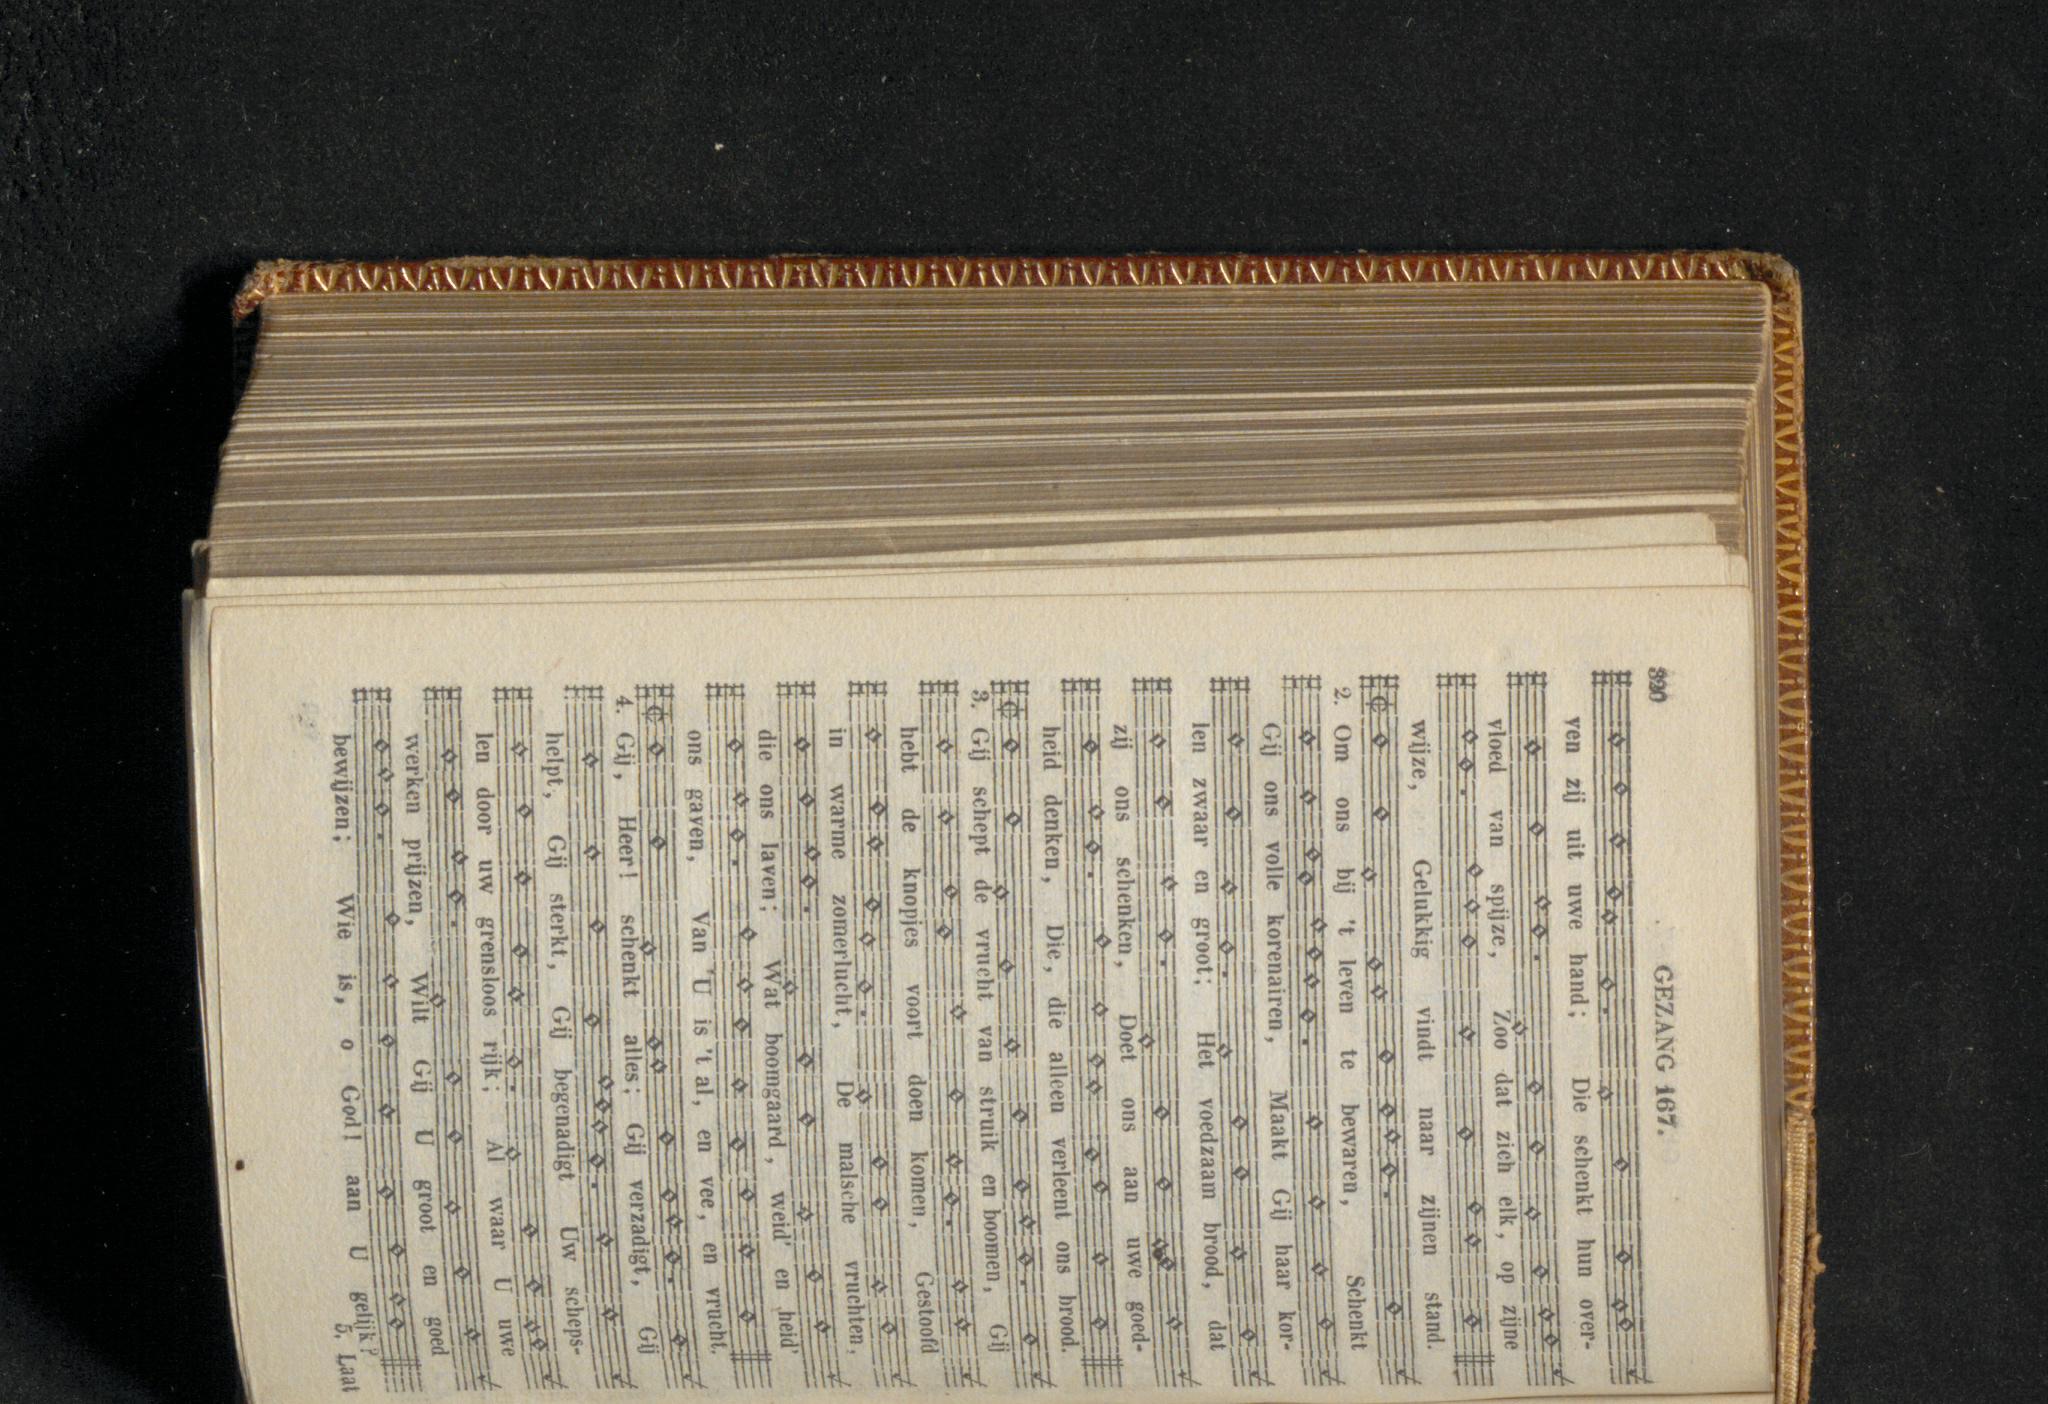 320
GEZANG 167.
ven zij uit uwe hand; Die schenkt hun over-
vloed van spijze, Zoo dat zich elk, op zijne
wijze, Gelukkig vindt naar zijnen stand.
2. Om ons bij 't leven te bewaren, Schenkt
Gij ons volle korenairen, Maakt Gij haar kor-
len zwaar en groot; Het voedzaam brood, dat
zij ons schenken, Doet ons aan uwe goed-
heid denken, Die, die alleen verleent ons brood.
3. Gij schept de vrucht van struik en boomen, Gij
hebt de knopjes voort doen komen, Gestoofd
in warme zomerlucht, De malsche vruchten,
die ons laven; Wat boomgaard, weid' en heid'
ons gaven, Van U is 't al, en vee, en vrucht.
4. Gij, Heer! schenkt alles; Gij verzadigt, Gij
helpt, Gij sterkt, Gij begenadigt Uw scheps-
len door uw grensloos rijk; Al waar U uwe
werken prijzen, Wilt Gij U groot en goed
bewijzen; Wie is, o God! aan U gelijk?
5. Laat